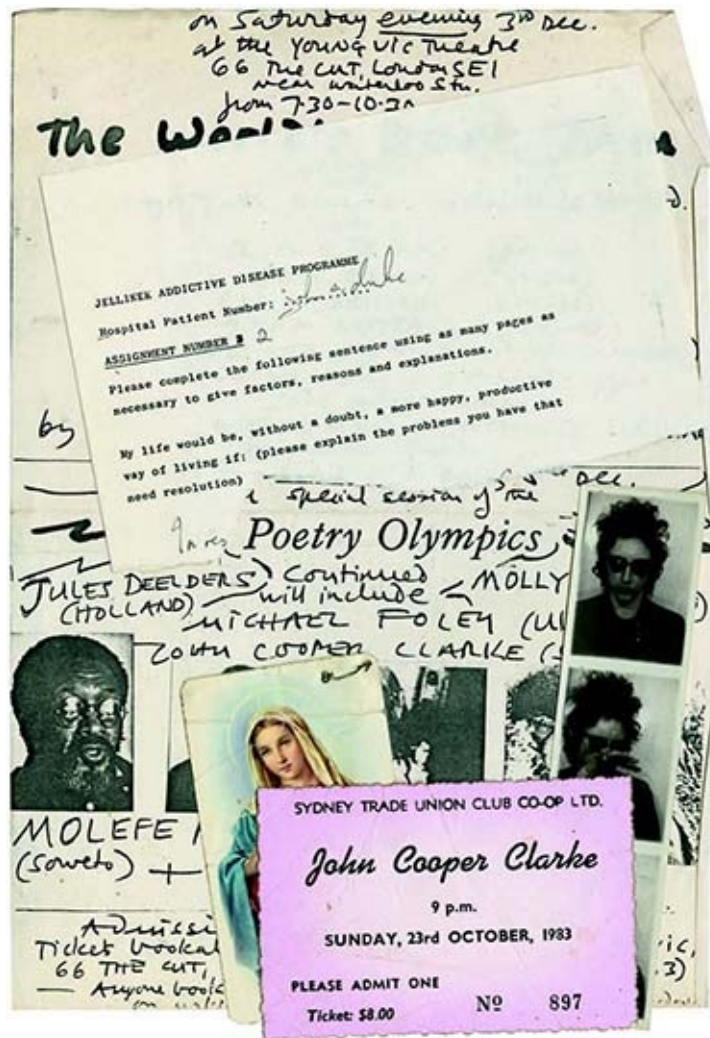 on Saturday evening 3rd Dec.
at the Young Vic Theatre
66 The Cut, London SE1
near Waterloo Stn.
from 7.30-10.30
The World's
JELLINEK ADDICTIVE DISEASE PROGRAMME
Hospital Patient Number:
ASSIGNMENT NUMBER 2
Please complete the following sentence using as many pages as
necessary to give factors, reasons and explanations.
My life would be, without a doubt, a more happy, productive
way of living if: (please explain the problems you have that
need resolution)
by
Dec.
special session of the
Poetry Olympics
JULES DEELDERS continued MOLLY
(HOLLAND) will include
MICHAEL FOLEY
JOHN COOPER CLARKE
MOLEFE
(Soweto) +
SYDNEY TRADE UNION CLUB CO-OP LTD.
John Cooper Clarke
9 p.m.
SUNDAY, 23rd OCTOBER, 1983
PLEASE ADMIT ONE
Ticket: $8.00 Nº 897
Admissi
Ticket
66 THE CUT,
Anyone